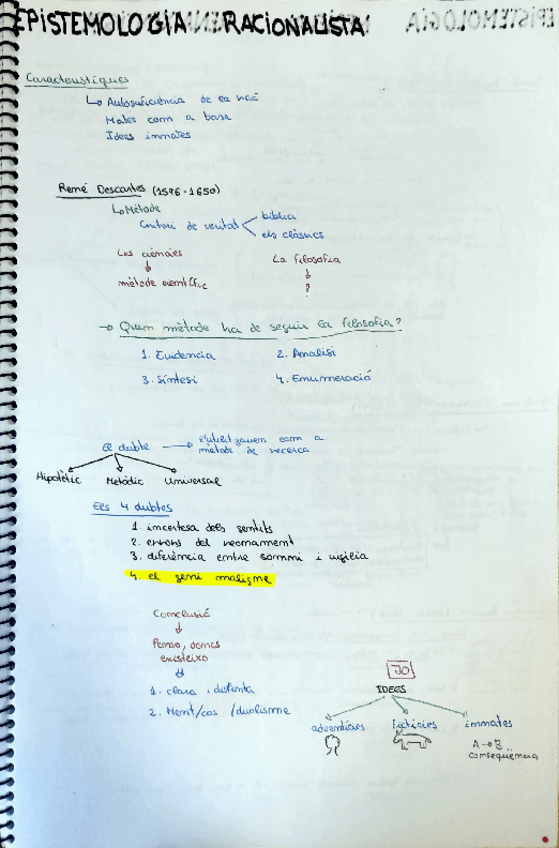 EPISTEMOLOGIA RACIONALISTA
Característiques
↳ Autosuficiència de la raó
Mates com a base
Idees innates
René Descartes (1596-1650)
↳ Mètode
Criteri de veritat
bíblia
els clàssics
Les ciències
↓
mètode científic
La filosofia
↓
?
→ Quin mètode ha de seguir la filosofia?
1. Evidencia 2. Analisi
3. Síntesi 4. Enumeració
el dubte → com a
mètode de recerca
Hipotètic Metòdic Universal
Els 4 dubtes
1. incertesa dels sentits
2. errors del raonament
3. diferència entre somni i vigilia
4. el geni maligne
Conclusió
↓
Penso, doncs
existeixo
↓
1. clara i distinta
2. Ment/cos /dualisme
JO
IDEES
adventícies factícies innates
A→B
consequència